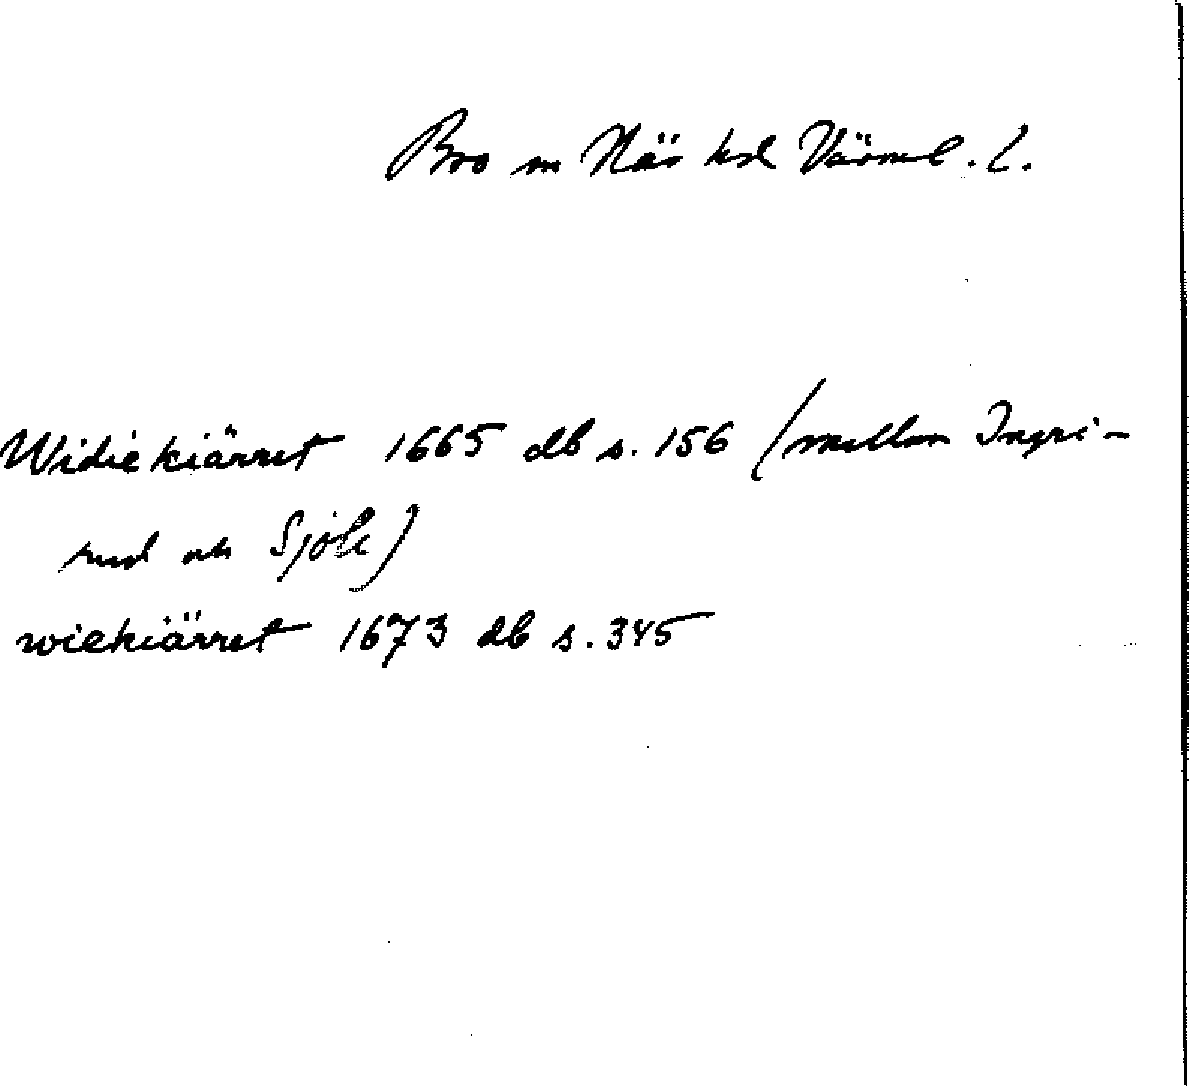 Bro sn Näs hd Värml. l.
Widiekiärret 1665 db s. 156 (mellan Ingri-
rud och Sjöli)
wiekiärret 1673 db s. 345